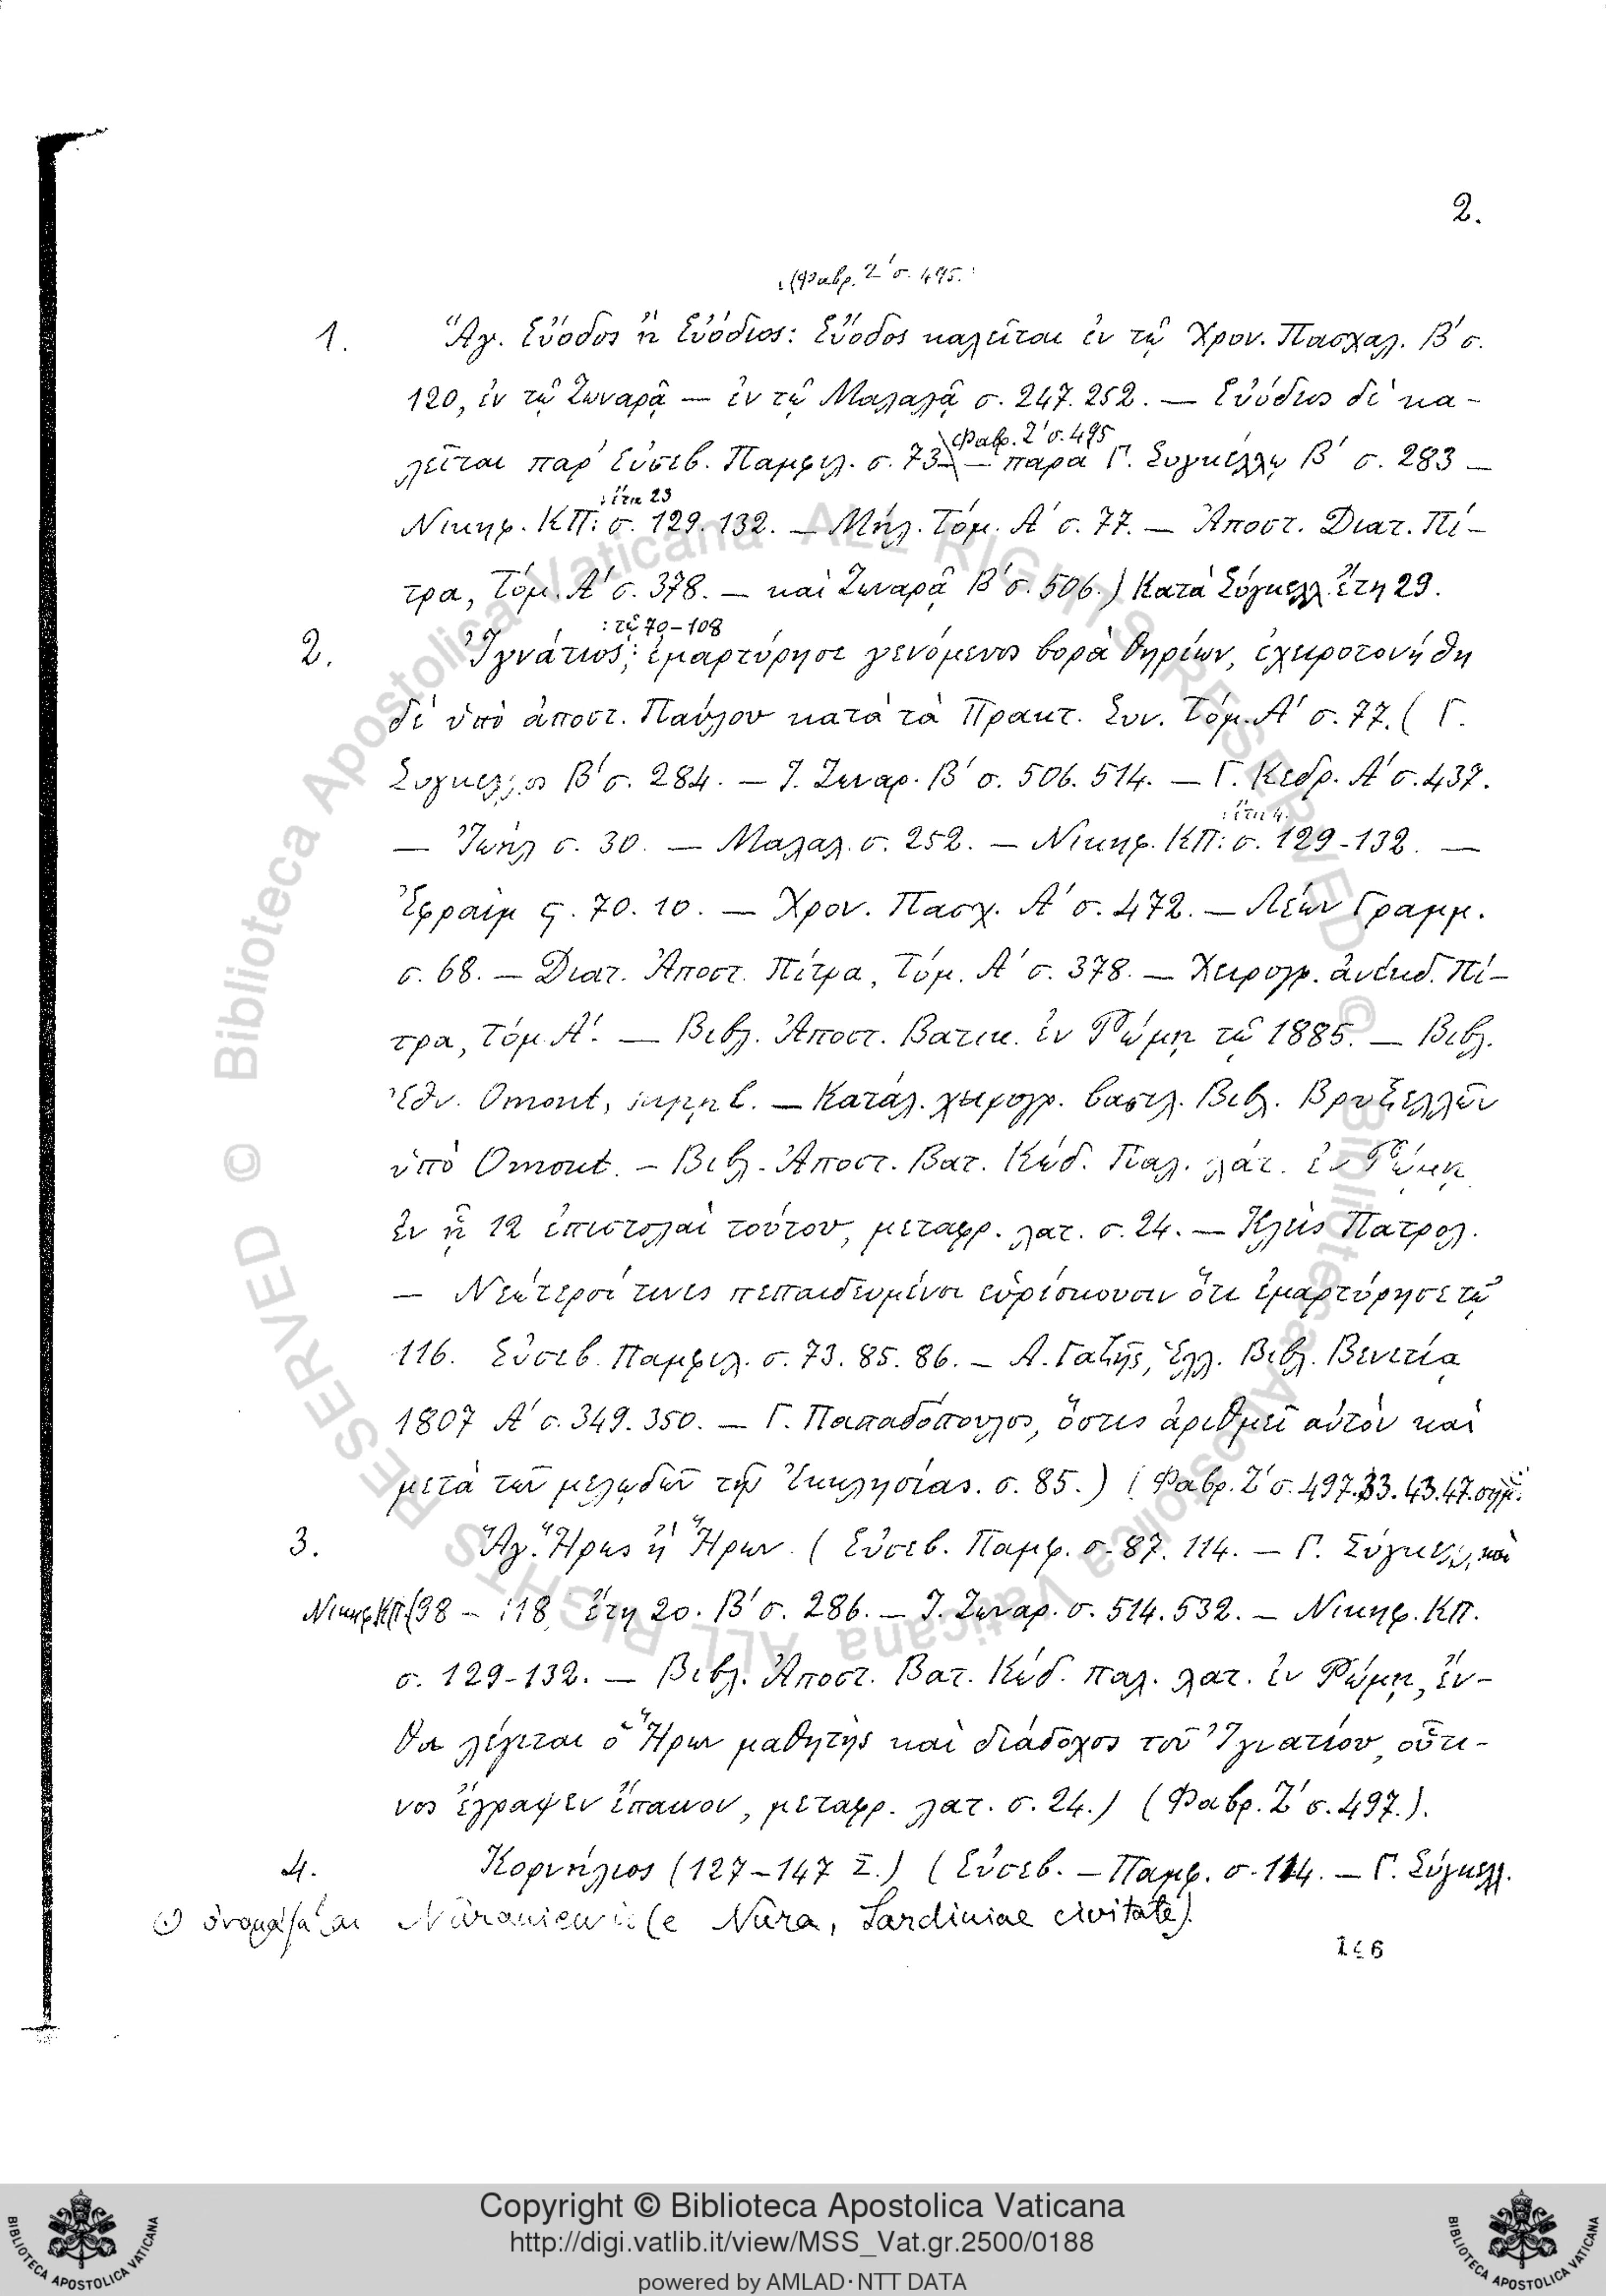 2.
(Φαβρ. Ζ΄ σ. 495.
1. Ἅγ. Εὔοδος ἢ Εὐόδιος: Εὔοδος καλεῖται ἐν τῷ Χρον. Πασχαλ. Β΄ σ.
120, ἐν τῷ Ζωναρᾷ — ἐν τῷ Μαλαλᾷ σ. 247. 252. — Εὐόδιος δὲ κα-
Φαβρ. Ζ΄ σ. 495
λεῖται παρ' Εὐσεβ. Παμφιλ. σ. 73 — παρὰ Γ. Συγκέλλῳ Β΄ σ. 283 —
: ἔτη 23
Νικηφ. ΚΠ: σ. 129. 132. — Μήλ. Τόμ. Α΄ σ. 77. — Ἀποστ. Διατ. Πί-
τρα, Τόμ. Α΄ σ. 378. — καὶ Ζωναρᾷ Β΄ σ. 506.) Κατὰ Σύγκελλ. ἔτη 29.
: τῷ 70-108
2. Ἰγνάτιος; ἐμαρτύρησε γενόμενος βορὰ θηρίων, ἐχειροτονήθη
δὲ ὑπὸ ἀποστ. Παύλου κατὰ τὰ Πρακτ. Συν. Τόμ. Α΄ σ. 77. ( Γ.
Συγκελλος Β΄ σ. 284. — Ἰ. Ζωναρ. Β΄ σ. 506. 514. — Γ. Κεδρ. Α΄ σ. 437.
: ἔτη 4.
— Ἰωήλ σ. 30. — Μαλαλ. σ. 252. — Νικηφ. ΚΠ: σ. 129-132. —
Ἐφραίμ ς. 70. 10. — Χρον. Πασχ. Α΄ σ. 472. — Λέων Γραμμ.
σ. 68. — Διατ. Ἀποστ. Πίτρα, Τόμ. Α΄ σ. 378. — Χειρογρ. ἀνέκδ. Πί-
τρα, Τόμ. Α΄. — Βιβλ. Ἀποστ. Βατικ. ἐν Ῥώμῃ τῷ 1885. — Βιβλ.
Ἐθν. Omont, — Κατάλ. χειρογρ. βασιλ. Βιβλ. Βρυξελλῶν
ὑπὸ Omont. — Βιβλ. Ἀποστ. Βατ. Κώδ. Παλ. λάτ. ἐν Ῥώμῃ
ἐν ᾗ 12 ἐπιστολαὶ τούτου, μεταφρ. λατ. σ. 24. — Κλεὶς Πατρολ.
— Νεώτεροί τινες πεπαιδευμένοι εὑρίσκουσιν ὅτι ἐμαρτύρησε τῷ
116. Εὐσεβ. Παμφιλ. σ. 73. 85. 86. — Α. Γαζῆς, Ἑλλ. Βιβλ. Βενετίᾳ
1807 Α΄ σ. 349. 350. — Γ. Παπαδόπουλος, ὅστις ἀριθμεῖ αὐτὸν καὶ
μετὰ τῶν μελῳδῶν τῆς Ἐκκλησίας. σ. 85.) (Φαβρ. Ζ΄ σ. 497. 33. 43. 47. σημ.
3. Ἅγ. Ἥρως ἢ Ἥρων ( Εὐσεβ. Παμφ. σ. 87. 114. — Γ. Σύγκελ, καὶ
Νικηφ ΚΠ (98 - 118, ἔτη 20. Β΄ σ. 286. — Ἰ. Ζωναρ. σ. 514. 532. — Νικηφ. ΚΠ.
σ. 129-132. — Βιβλ. Ἀποστ. Βατ. Κώδ. παλ. λατ. ἐν Ῥώμῃ, ἔν-
θα λέγεται ὁ Ἥρων μαθητὴς καὶ διάδοχος τοῦ Ἰγνατίου, οὗτι-
νος ἔγραψεν ἔπαινον, μεταφρ. λατ. σ. 24.) (Φαβρ. Ζ΄ σ. 497.).
4. Κορνήλιος (127-147 Σ.) ( Εὐσεβ. — Παμφ. σ. 114. — Γ. Σύγκελλ.
(e Nura, Sardiniae civitate).
© Biblioteca Apostolica Vaticana ALL RIGHTS RESERVED © Biblioteca Apostolica Vaticana ALL RIGHTS RESERVED
BIBLIOTECA APOSTOLICA VATICANA
Copyright © Biblioteca Apostolica Vaticana
http://digi.vatlib.it/view/MSS_Vat.gr.2500/0188
powered by AMLAD·NTT DATA
BIBLIOTECA APOSTOLICA VATICANA